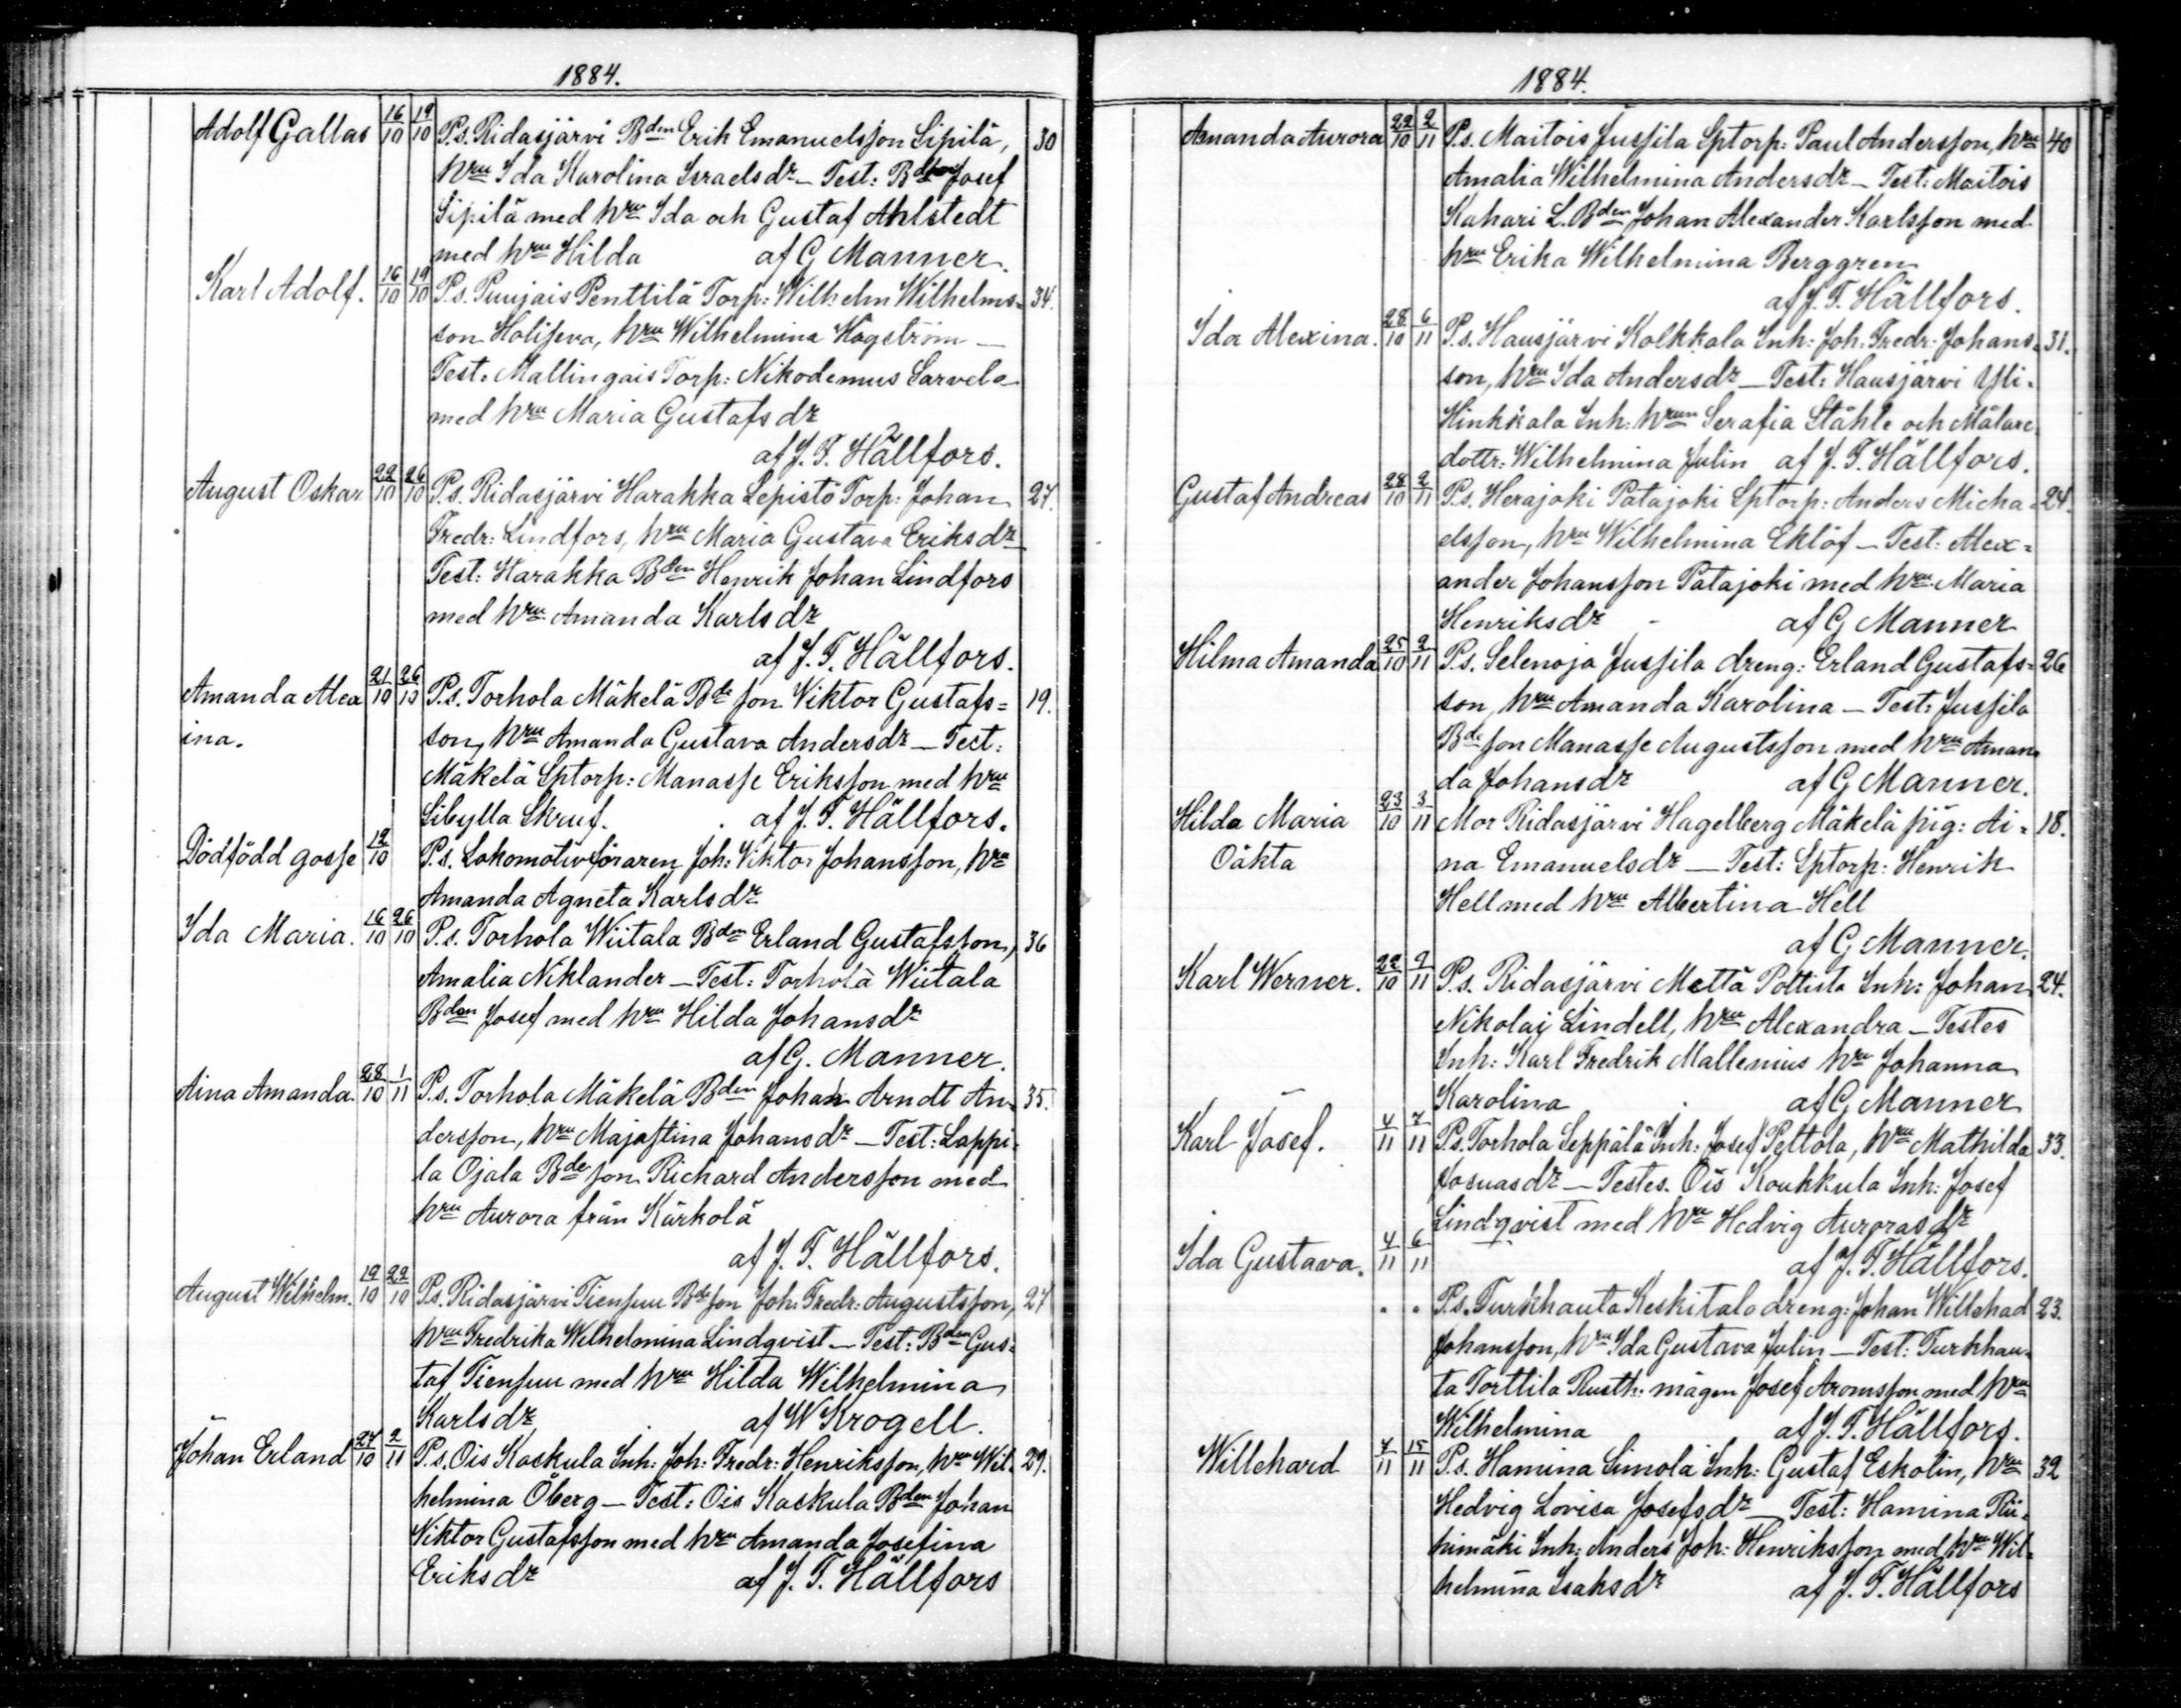 1884.
Adolf Gallas 16/10 19/10 P.s. Ridasjärvi Bden Erik Emanuelsson Sipilä, 30
hru Ida Karolina Israelsdr – Test: Bdson Josef
Sipilä med hru Ida och Gustaf Ahlstedt
med hru Hilda af G Manner.
Karl Adolf. 16/10 19/10 P.s. Puujais Penttilä Torp: Wilhelm Wilhelms= 34.
son Holiseva, hru Wilhelmina Högström –
Test: Mallingais Torp: Nikodemus Sarvela
med hru Maria Gustafsdr
af J. F. Hällfors.
August Oskar 22/10 26/10 P.s. Ridasjärvi Harakka Lepistö Torp: Johan 27.
Fredr: Lindfors, hru Maria Gustava Eriksdr –
Test: Harakka Bden Henrik Johan Lindfors
med hru Amanda Karlsdr
af J. F. Hällfors.
Amanda Alex 21/10 26/10 P.s. Torhola Mäkelä Bde son Viktor Gustafs= 19.
ina. son, hru Amanda Gustava Andersdr – Test:
Mäkelä Sptorp: Manasse Eriksson med hru
Sibylla Skruf. af J. F. Hällfors.
Dödfödd gosse 12/10 P.s. Lokomotivföraren Joh: Viktor Johansson, hru
Amanda Agneta Karlsdr
Ida Maria. 16/10 26/10 P.s. Torhola Wiitala Bden Erland Gustafsson, 36
Amalia Niklander – Test: Torhola Wiitala
Bden Josef med hru Hilda Johansdr
af G. Manner.
Aina Amanda 28/10 1/11 P.s. Torhola Mäkelä Bden Johan Arndt An= 35.
dersson, hru Majastina Johansdr – Test: Lappi=
la Ojala Bde son Richard Andersson med
hru Aurora från Kärkolä
af J. F. Hällfors.
August Wilhelm. 19/10 22/10 P.s. Ridasjärvi Tiensuu Bde son Joh: Fredr: Augustsson, 27
hru Fredrika Wilhelmina Lindqvist – Test: Bden Gus=
taf Tiensuu med hru Hilda Wilhelmina
Karlsdr af W Krogell.
Johan Erland 27/10 2/11 P.s. Ois Kaskula Inh: Joh: Fredr: Henriksson, hru Wil= 29.
helmina Öberg – Test: Ois Kaskula Bden Johan
Viktor Gustafsson med hru Amanda Josefina
Eriksdr af J. F. Hällfors
1884.
Amanda Aurora 22/10 2/11 P.s. Maitois Jussila Sptorp: Paul Andersson, hru 40
Amalia Wilhelmina Andersdr – Test: Maitois
Kahari L. Bden Johan Alexander Karlsson med
hru Erika Wilhelmina Berggren
af J. F. Hällfors.
Ida Alexina. 28/10 6/11 P.s. Hausjärvi Kolkkala Inh: Joh: Fredr: Johans= 31.
son, hru Ida Andersdr – Test: Hausjärvi Yli=
Hinkkala Inh: hrun Serafia Ståhle och Målare
dottr: Wilhelmina Julin af J. F. Hällfors.
Gustaf Andreas 28/10 2/11 P.s. Herajoki Patajoki Sptorp: Anders Micha= 24.
elsson, hru Wilhelmina Eklöf – Test: Alex=
ander Johansson Patajoki med hru Maria
Henriksdr – af G Manner
Hilma Amanda 25/10 2/11 P.s. Selenoja Jussila dreng: Erland Gustafs= 26
son, hru Amanda Karolina – Test: Jussila
Bde son Manasse Augustsson med hru Aman=
da Johansdr af G Manner.
Hilda Maria 23/10 3/11 Mor Ridasjärvi Hagelberg Mäkelä pig: Ai= 18.
Oäkta na Emanuelsdr – Test: Sptorp: Henrik
Hell med hru Albertina Hell
af G Manner.
Karl Werner. 22/10 2/11 P.s. Ridasjärvi Mettä Pottista Inh: Johan 24.
Nikolai Lindell, hru Alexandra – Testes
Inh: Karl Fredrik Mallenius hru Johanna
Karolina af G Manner
Karl Josef. 4/11 7/11 P.s. Torhola Seppälä Inh: Josef Peltola, hru Mathilda 33.
Josuasdr – Testes. Ois Koukkula Inh: Josef
Lindqvist med hru Hedvig Aurorasdr
Ida Gustava. 4/11 6/11 af J. F. Hällfors.
" " P.s. Turkhauta Keskitalo dreng: Johan Willehad 23.
Johansson, hru Ida Gustava Julin – Test: Turkhau=
ta Torttila Rusth: mågen Josef Aronsson med hru
Wilhelmina af J. F. Hällfors.
Willehard 7/11 15/11 P.s. Hamina Simola Inh: Gustaf Eskolin, hru 32
Hedvig Lovisa Josefsdr – Test: Hamina Rii=
himäki Inh: Anders Joh: Henriksson med hru Wil=
helmina Isaksdr af J. F. Hällfors